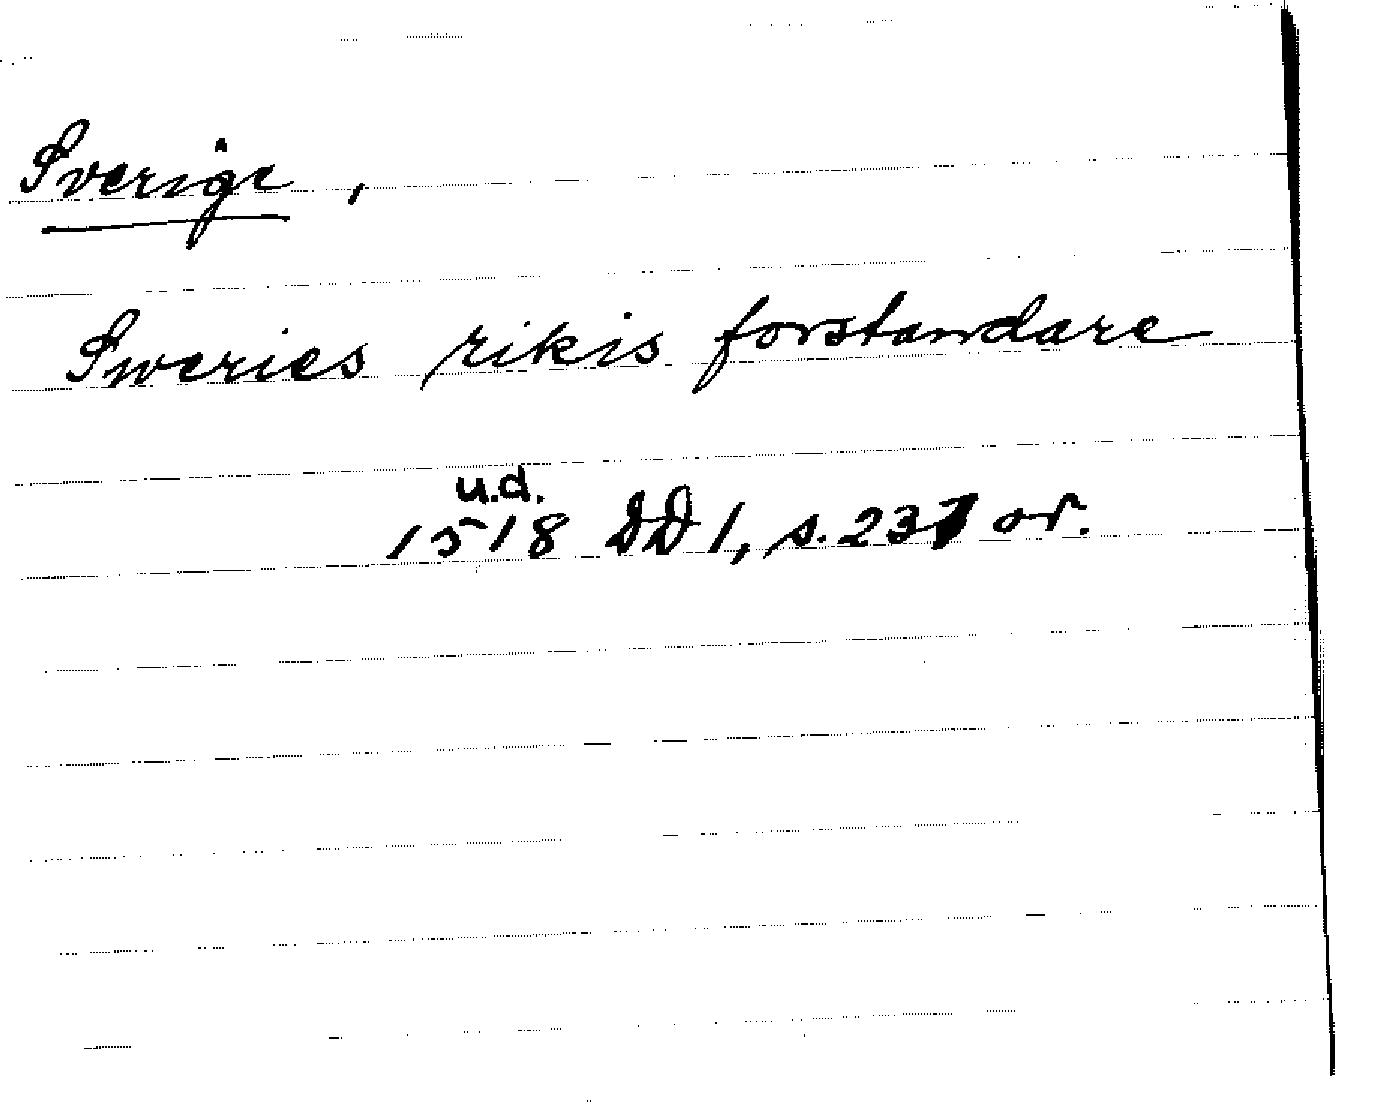 Sverige,
Sweries rikis forstandare
u.d.
1518 DD 1, s. 237 or.